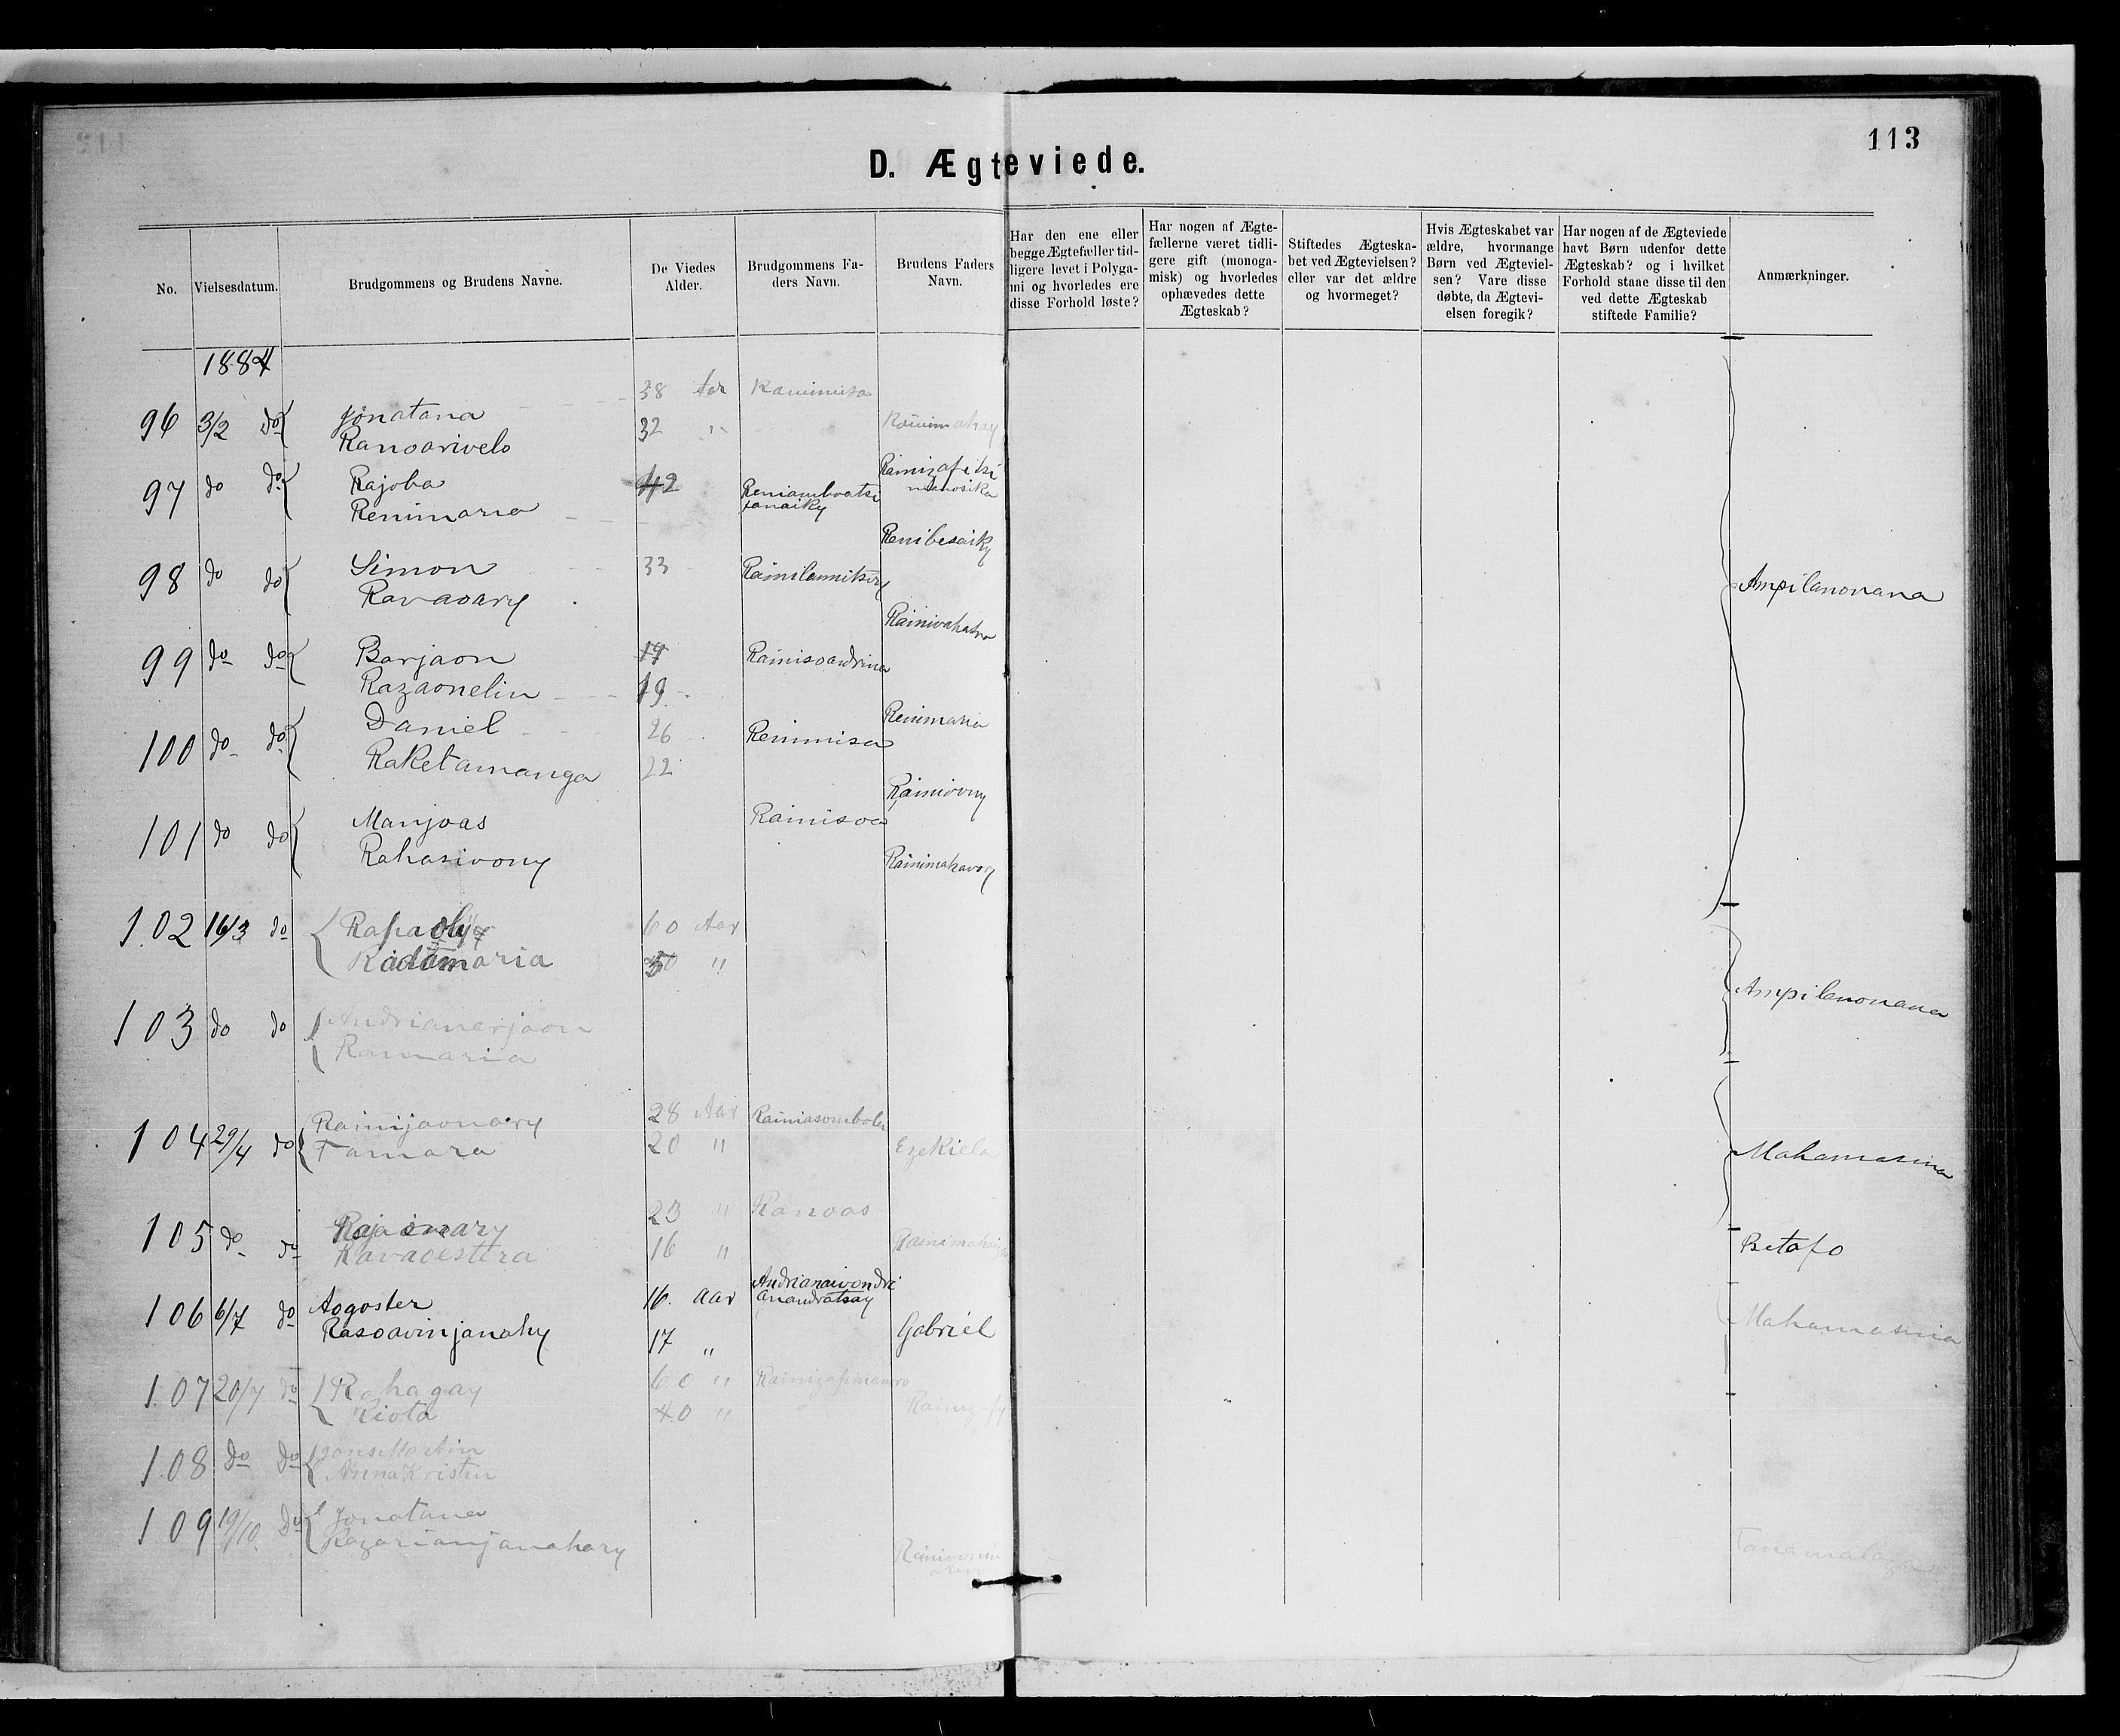 113
D. Ægteviede.
No.
Vielsesdatum.
Brudgommens og Brudens Navne.
De Viedes
Alder.
Brudgommens Fa-
ders Navn.
Brudens Faders
Navn.
Har den ene eller
begge Ægtefæller tid-
ligere levet i Polyga-
mi og hvorledes ere
disse Forhold løste?
Har nogen af Ægte-
fællerne været tidli-
gere gift (monoga-
misk) og hvorledes
ophævedes dette
Ægteskab?
Stiftedes Ægteska-
bet ved Ægtevielsen?
eller var det ældre
og hvormeget?
Hvis Ægteskabet var
ældre, hvormange
Børn ved Ægteviel-
sen? Vare disse
døbte, da Ægtevi-
elsen foregik?
Har nogen af de Ægteviede
havt Børn udenfor dette
Ægteskab? og i hvilket
Forhold staae disse til den
ved dette Ægteskab
stiftede Familie?
Anmærkninger.
1884
96 3/2 do Jonatana 38 Aar Rainimisa
Ranoarivelo 32 " Rainimahay
97 do do Rajoba 42 Reniamboatsi
zanaiky
Rainizafitsi
manosika
Renimaria
98 do do Simon 33 Rainilamitsiry Renibesaiky
Ravaoary
99 do do Barjaon 19 Rainisoandrina Rainivahatra
Razaonelin 19
100 do do Daniel 26 Renimisa Renimaria
Raketamanga 22
101 do do Manjoas Rainisoa Rainivony
Rahasivony Rainimahavory
Ampilanonana
102 16/3 do Rapaoly 60 Aar
Radamaria "
103 do do Andrianarjaon
Ranmaria
Ampilanonana
104 29/4 do Rainijaonary 28 Aar Rainiasombola
Tamara 20 " Ezekiela
Mahamasina
105 do do Rajaonary 23 " Ranoas
Ravaoestera 16 "
Betafo
106 6/7 do Aogoster 16. Aar Andrianaivondri
anandratsay
Rasoavinjanahy 17 " Gabriel
Mahamasina
107 20/7 do Rahagay 60 " Rainizafimanoro
Riota 40 "
108 do do Jons Martin
Anna Kristin
109 19/10. do Jonatana
Razarianjanahary